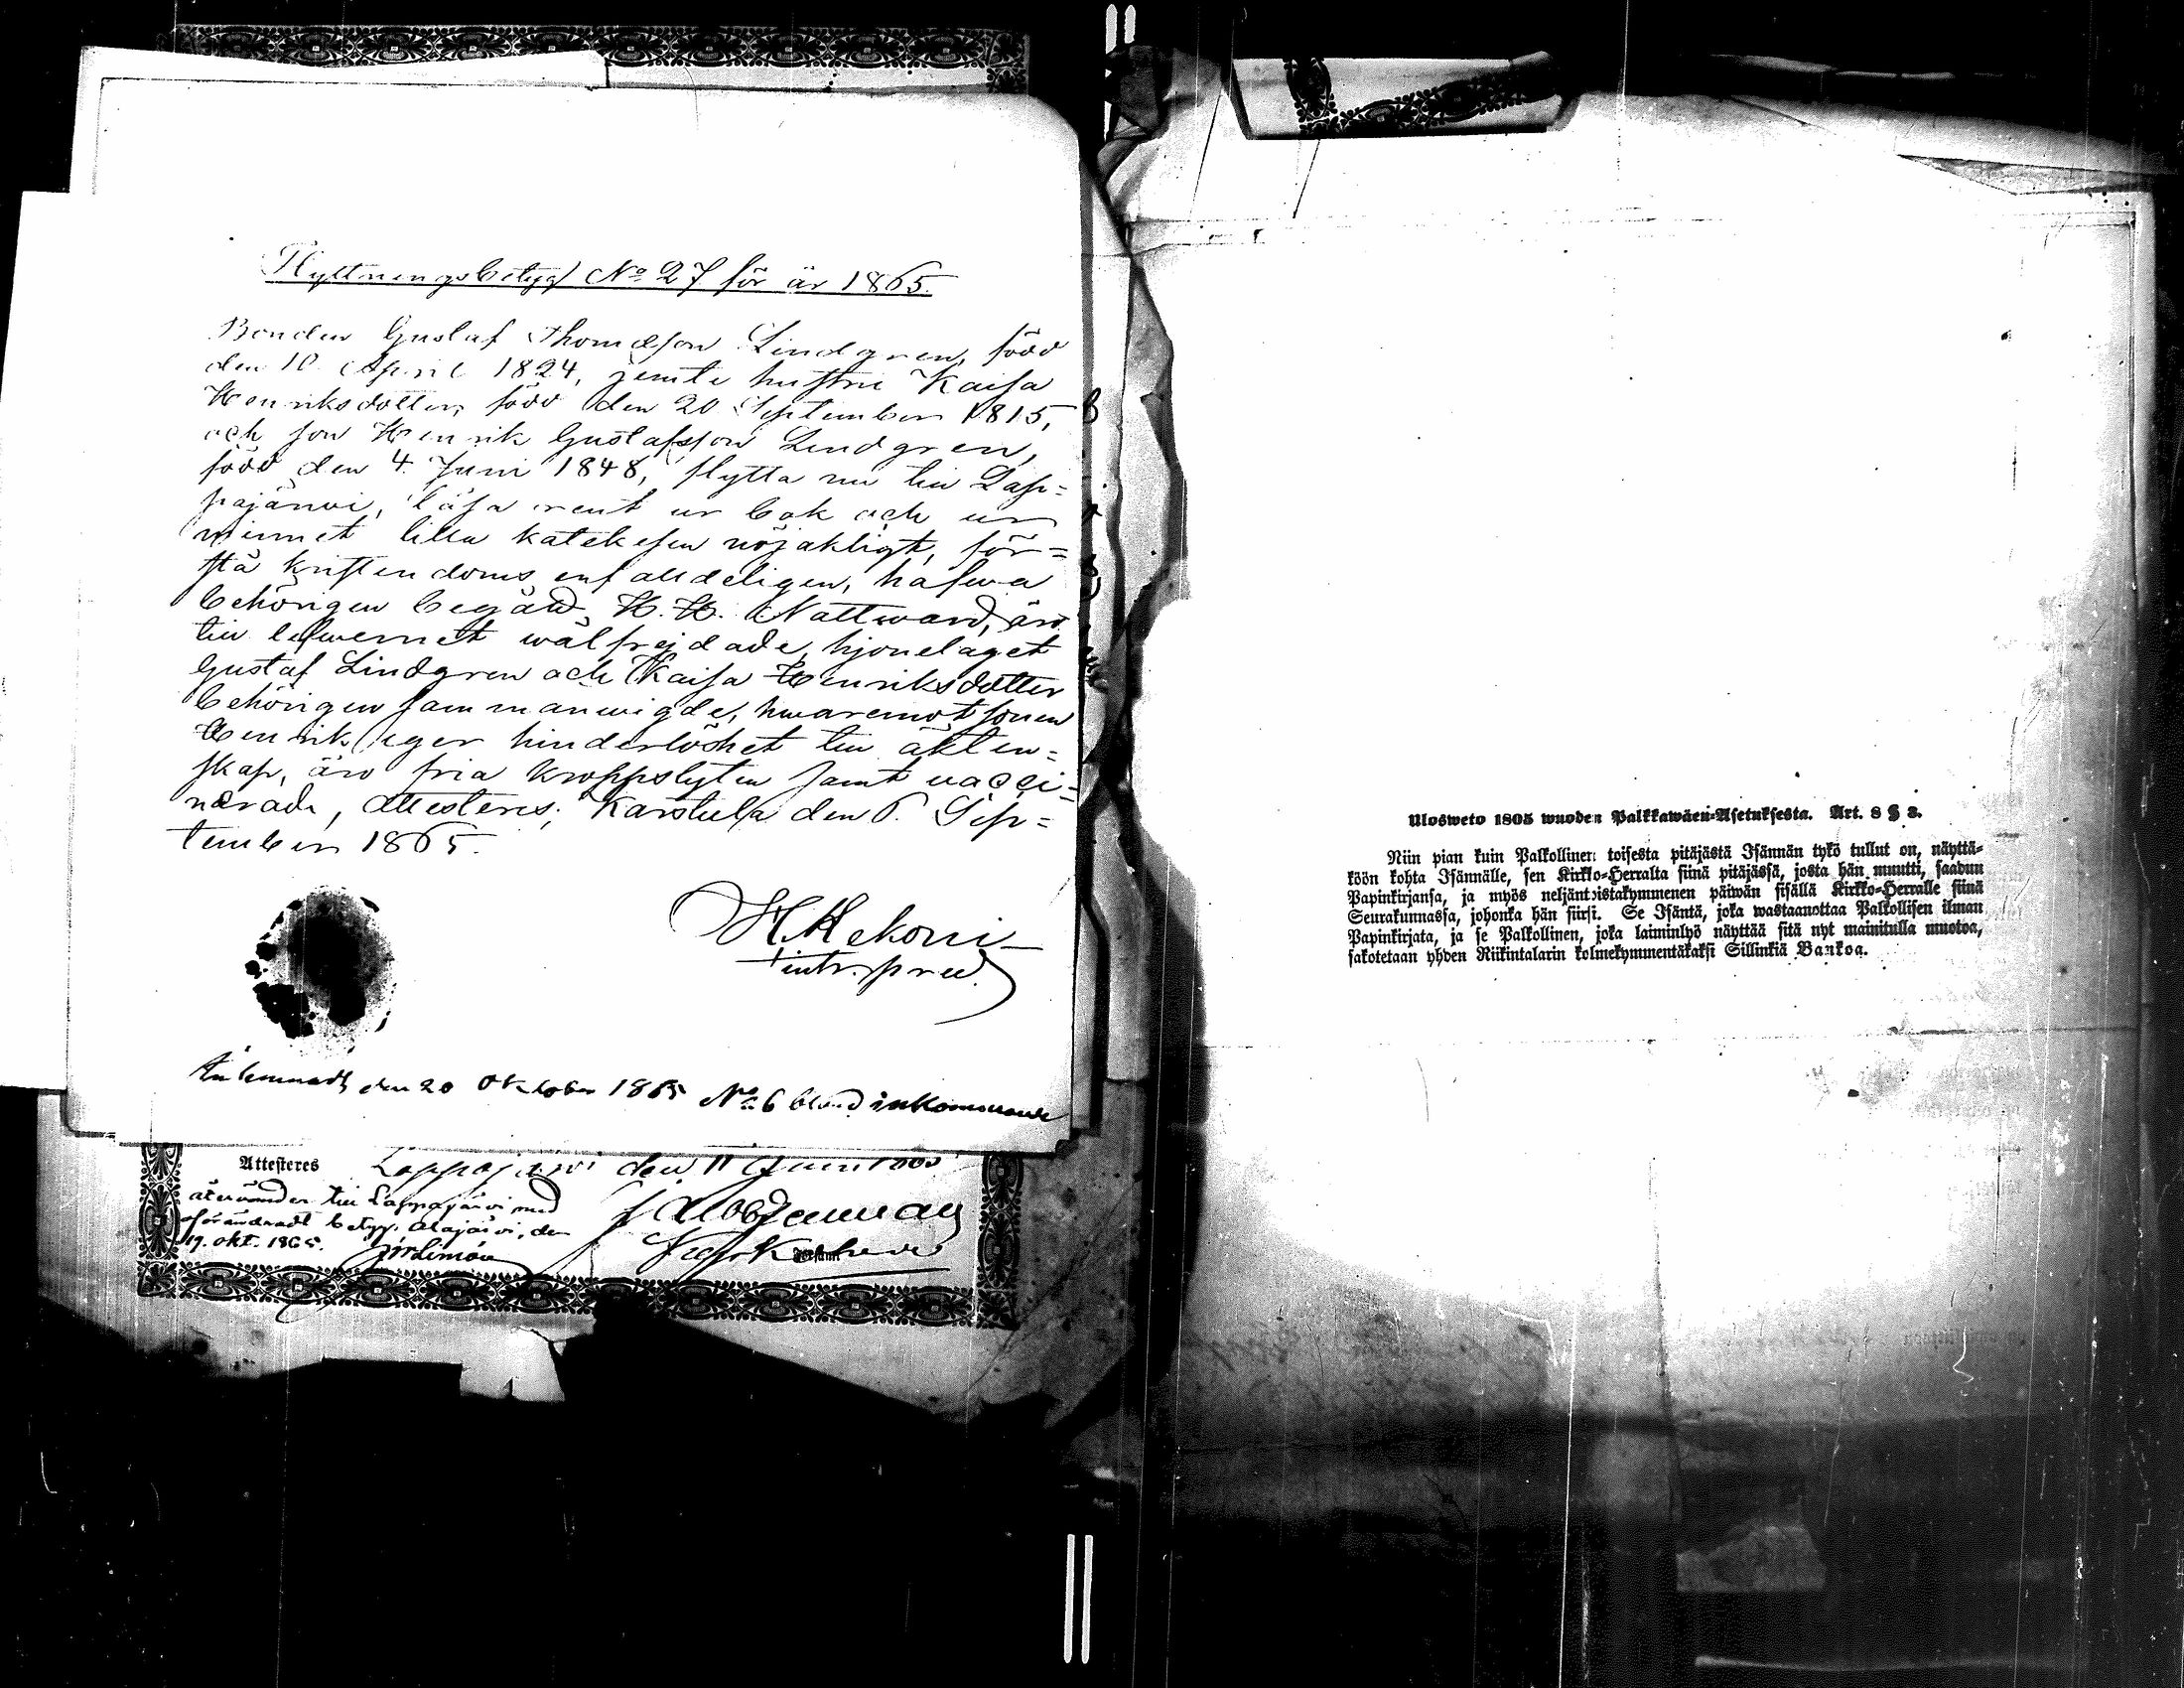 Flyttningsbetyg No 27 för år 1865.
Bonden Gustaf Thomasson Lindgren, född
den 10 April 1824, jemte hustru Kaisa
Henriksdotter, född den 20 September 1815,
och son Henrik Gustafsson Lindgren,
född den 4 Juni 1848, flytta nu till Lap=
pajärwi, läsa rent ur bok och ur
minnet lilla katekesen nöjaktigt, för=
stå kristendoms enfalldeligen, hafwa
behörigen begådt H. H. Nattward, äro
till lefwernet wälfrejdade, hjonelaget
Gustaf Lindgren och Kaisa Henriksdotter
behörigen sammanwigde, hwaremot sonen
Henrik eger hinderlöshet till äkten=
skap, äro fria kroppslyten samt vacci=
nerade, attesteras; Karstula den 6. Sep=
tember 1865.
H. Hekoni
intr. pred.
Inlemnadt den 20 Oktober 1865 No 6 bland inkommande
Attesteres Lappajärvi den 11 Juni
återsändes till Lappajärvi med
förändradt betyg. Alajärvi, den
19. okt. 1865.
Ulosweto 1805 wuoden Palkkawäen-Asetuksesta. Art. 8 § 3.
Niin pian kuin Palkollinen toisesta pitäjästä Isännän tykö tullut on, näyttä-
köön kohta Isännälle, sen Kirkko-Herralta siinä pitäjässä, josta hän muutti, saadun
Papinkirjansa, ja myös neljäntoistakymmenen päiwän sisällä Kirkko-Herralle siinä
Seurakunnassa, johonka hän siirsi. Se Isäntä, joka wastaanottaa Palkollisen ilman
Papinkirjata, ja se Palkollinen, joka laiminlyö näyttää sitä nyt mainitulla muotoa,
sakotetaan yhden Riikintalarin kolmekymmentäkaksi Sillinkiä Bankoa.